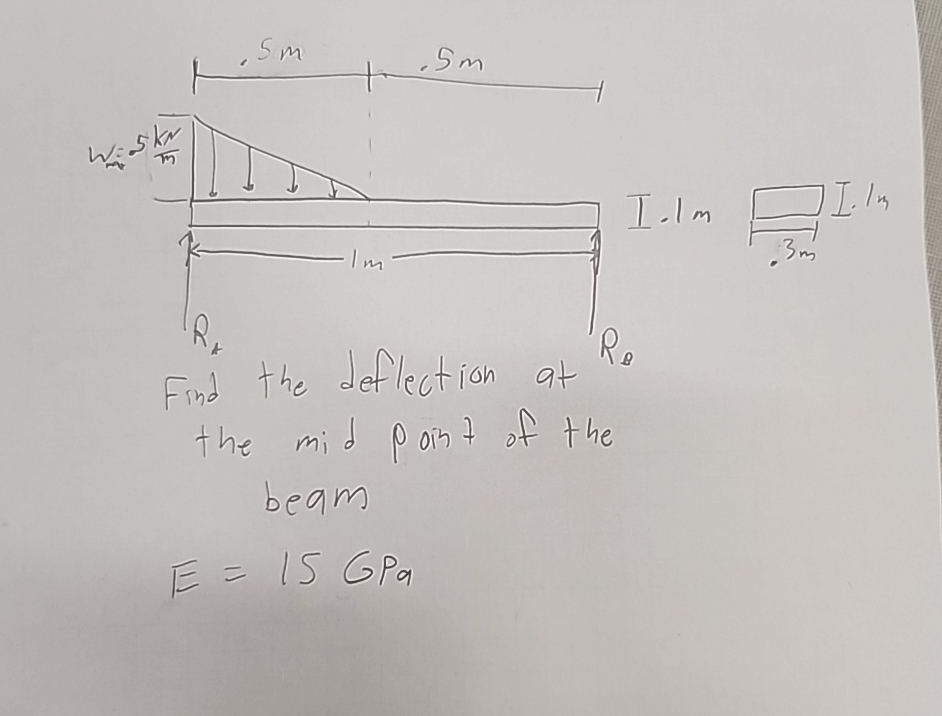 .5m .5m
W = 5 kN/m
.1m .1m
.3m
1m
R_A R_B
Find the deflection at
the mid point of the
beam
E = 15 GPa